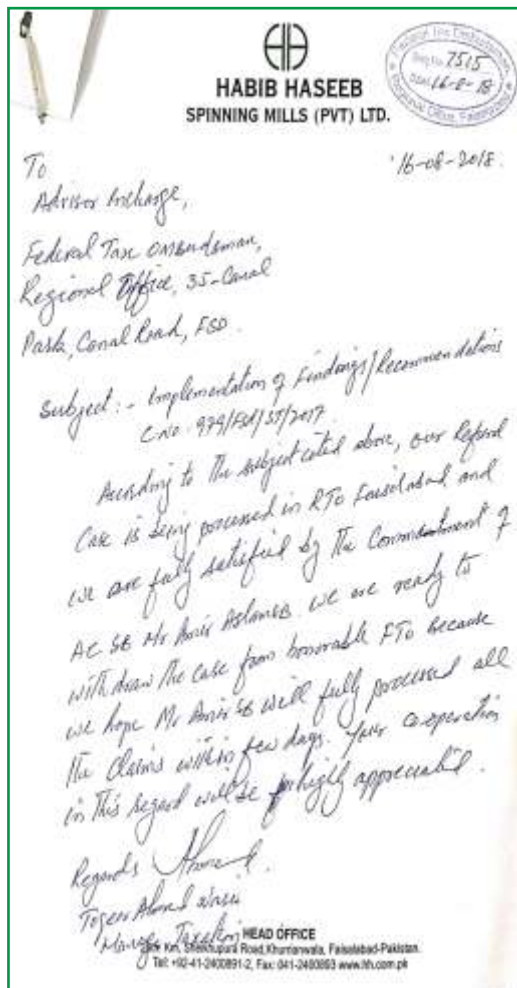 HABIB HASEEB
SPINNING MILLS (PVT) LTD.
Regional Office, Faisalabad
7515
16-8-18
16-08-2018.
To
Advisor Incharge,
Federal Tax Ombudsman,
Regional Office, 35-Canal
Park, Canal Road, FSD.
Subject:- Implementation of Findings/Recommendations
C.No. 979/FSD/ST/2017
According to the subject cited above, our Refund
Case is being processed in RTO Faisalabad and
we are fully satisfied by the Commitment of
AC SB Mr Amir Aslam SB. we are ready to
with draw the case from honorable FTO because
we hope Mr Amir SB will fully processed all
the Claims within few days. Your co-operation
in this regard will be highly appreciated.
Regards
Ahmed
Manager Taxation
HEAD OFFICE
Km, Sheikhupura Road, Khurrianwala, Faisalabad-Pakistan.
Tel: +92-41-2400891-2, Fax: 041-2400893 www.hh.com.pk